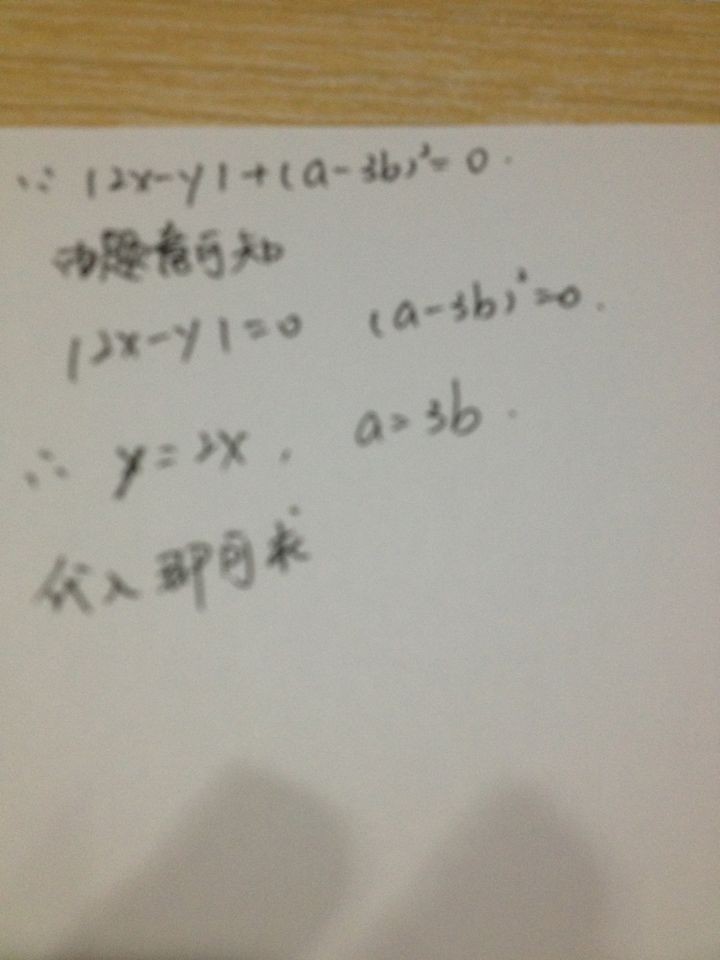 ∵ |2x-y|+(a-3b)²=0.
由题意可知
|2x-y|=0 (a-3b)²=0.
∴ y=2x, a=3b.
代入即可求